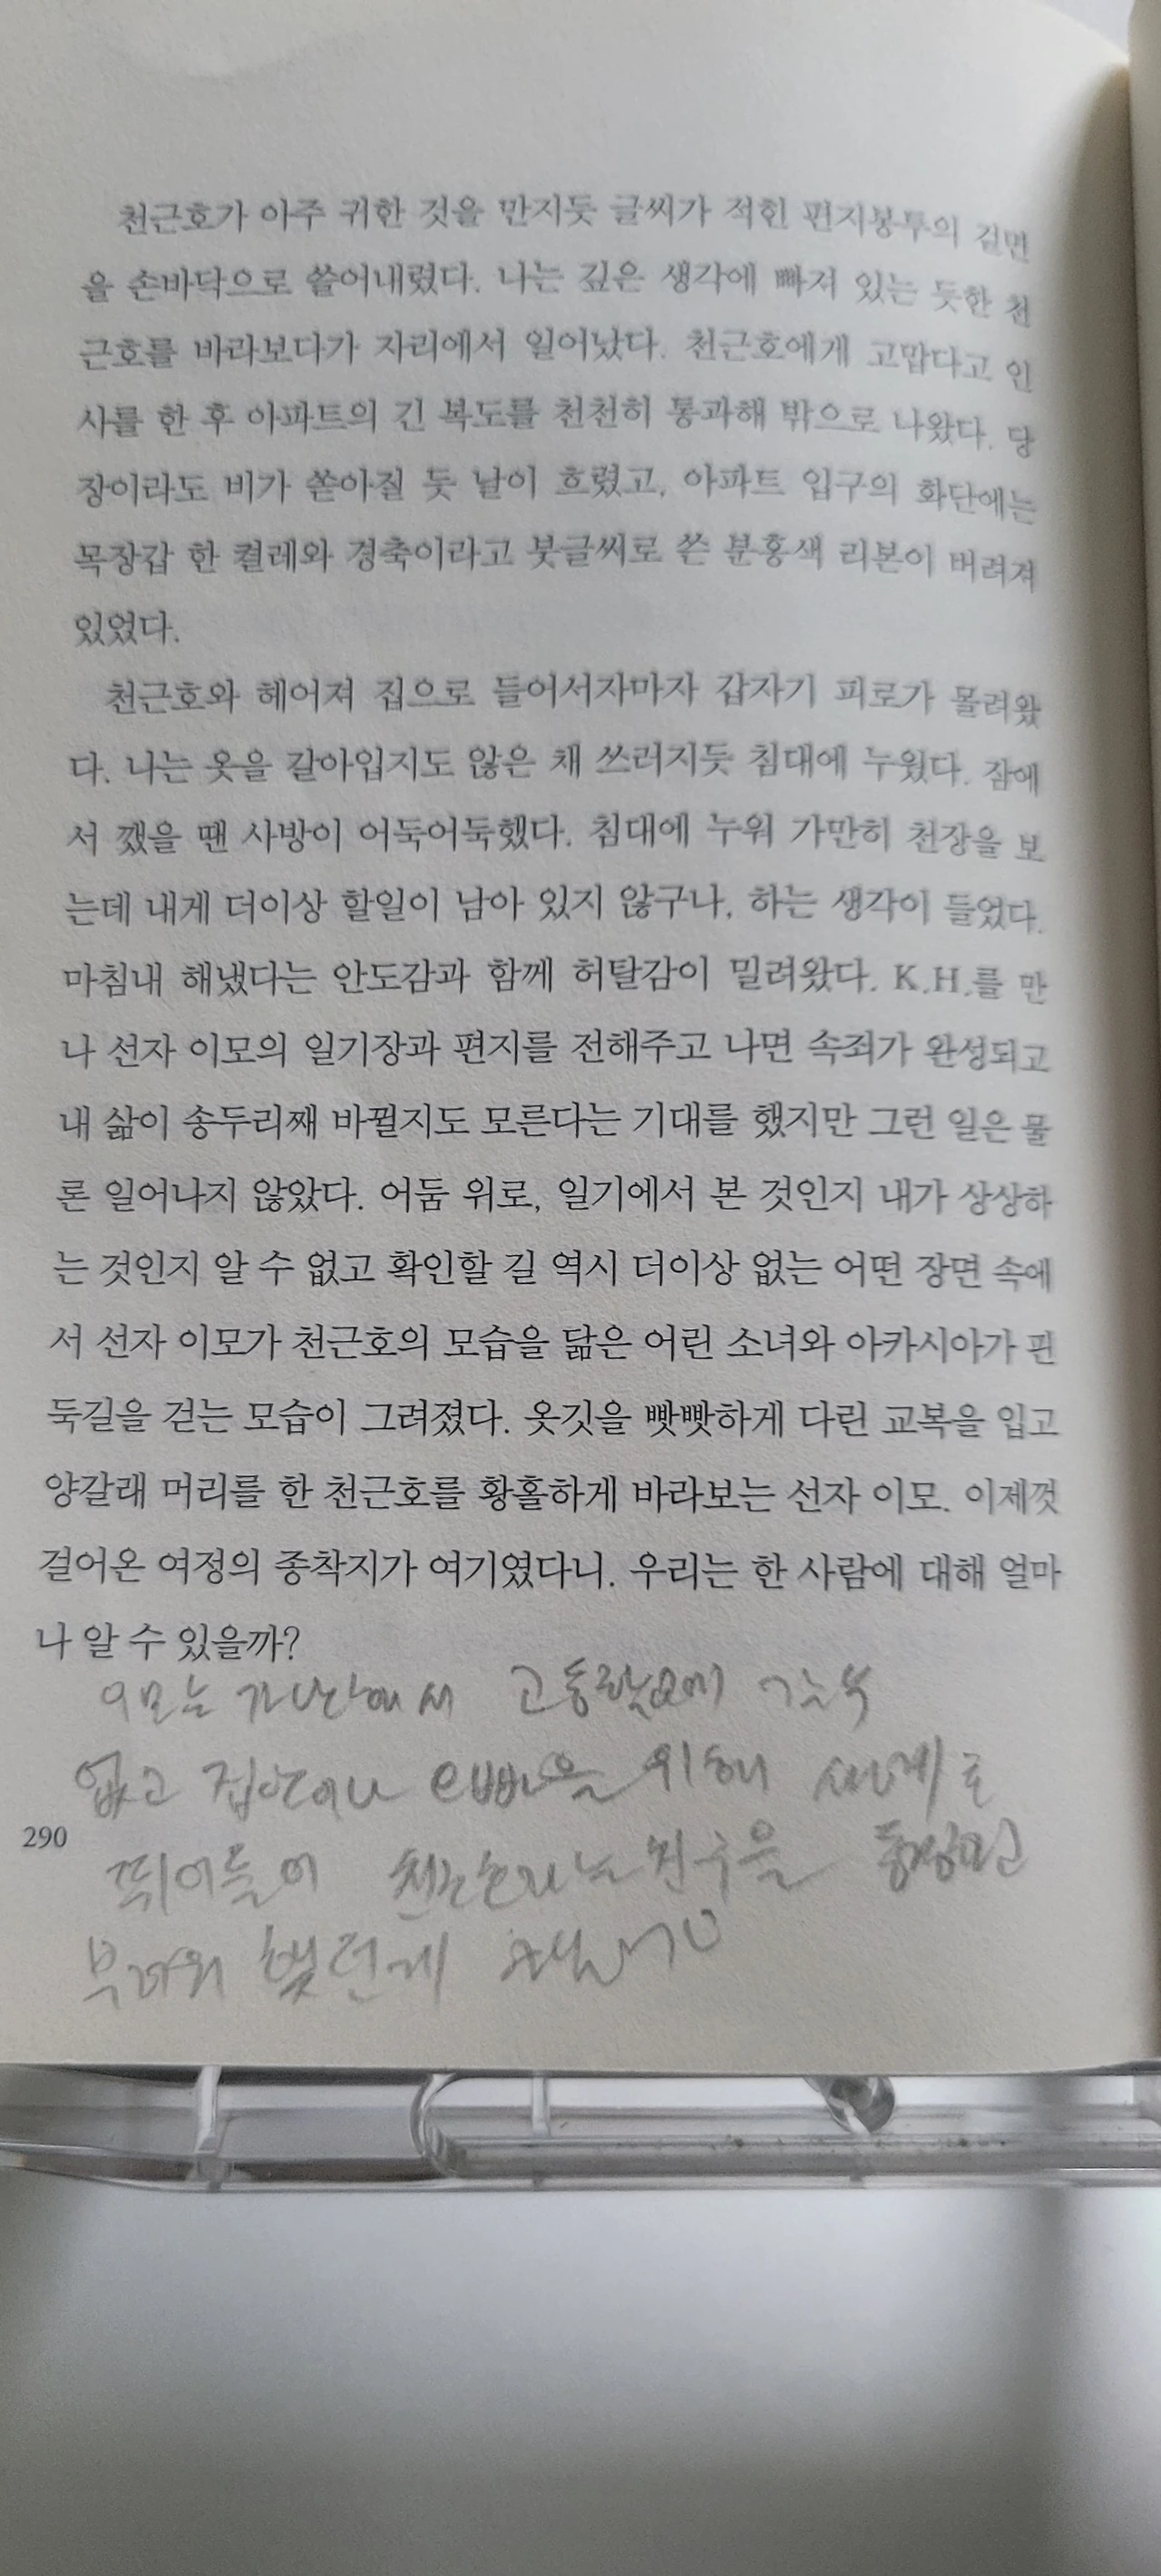 천근호가 아주 귀한 것을 만지듯 글씨가 적힌 편지봉투의 겉면
을 손바닥으로 쓸어내렸다. 나는 깊은 생각에 빠져 있는 듯한 천
근호를 바라보다가 자리에서 일어났다. 천근호에게 고맙다고 인
사를 한 후 아파트의 긴 복도를 천천히 통과해 밖으로 나왔다. 당
장이라도 비가 쏟아질 듯 날이 흐렸고, 아파트 입구의 화단에는
목장갑 한 켤레와 경축이라고 붓글씨로 쓴 분홍색 리본이 버려져
있었다.
천근호와 헤어져 집으로 들어서자마자 갑자기 피로가 몰려왔
다. 나는 옷을 갈아입지도 않은 채 쓰러지듯 침대에 누웠다. 잠에
서 깼을 땐 사방이 어둑어둑했다. 침대에 누워 가만히 천장을 보
는데 내게 더이상 할일이 남아 있지 않구나, 하는 생각이 들었다.
마침내 해냈다는 안도감과 함께 허탈감이 밀려왔다. K.H.를 만
나 선자 이모의 일기장과 편지를 전해주고 나면 속죄가 완성되고
내 삶이 송두리째 바뀔지도 모른다는 기대를 했지만 그런 일은 물
론 일어나지 않았다. 어둠 위로, 일기에서 본 것인지 내가 상상하
는 것인지 알 수 없고 확인할 길 역시 더이상 없는 어떤 장면 속에
서 선자 이모가 천근호의 모습을 닮은 어린 소녀와 아카시아가 핀
둑길을 걷는 모습이 그려졌다. 옷깃을 빳빳하게 다린 교복을 입고
양갈래 머리를 한 천근호를 황홀하게 바라보는 선자 이모. 이제껏
걸어온 여정의 종착지가 여기였다니. 우리는 한 사람에 대해 얼마
나 알 수 있을까?
이모는 가난해서 고등학교에 갈 수
없고 집안이나 오빠를 위해
290
뛰어들어 친구를 동경하고
부러워 했던게